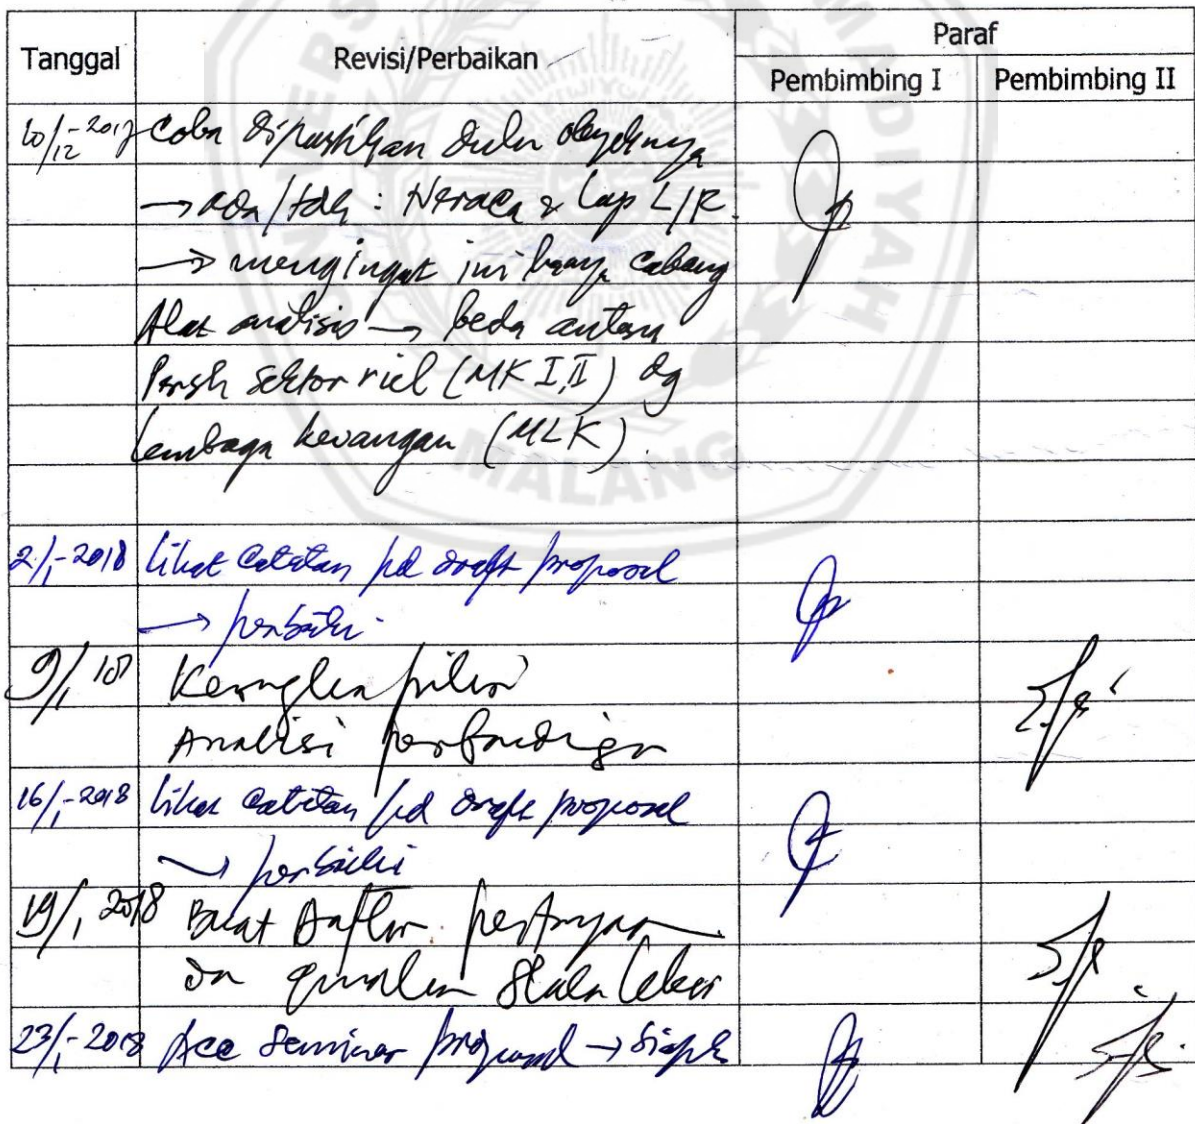 Paraf
Tanggal Revisi/Perbaikan
Pembimbing I Pembimbing II
10/12-2017 Coba dipastikan dulu obyeknya
→ ada/tdk : Neraca & Lap L/R.
→ mengingat ini hanya cabang
Alat analisis → beda antara
Persh Sektor riel (MK I,II) dg
Lembaga keuangan (MLK).
MALANG
2/1-2018 lihat catatan pd draft proposal
→ perbaiki
9/1 Kerangka pikir
Analisi perbandingan
16/1-2018 lihat catatan pd draft proposal
→ perbaiki
19/1 2018 Buat Daftar pertanyaan
dn gunakan Skala
23/1-2018 Acc Seminar proposal →